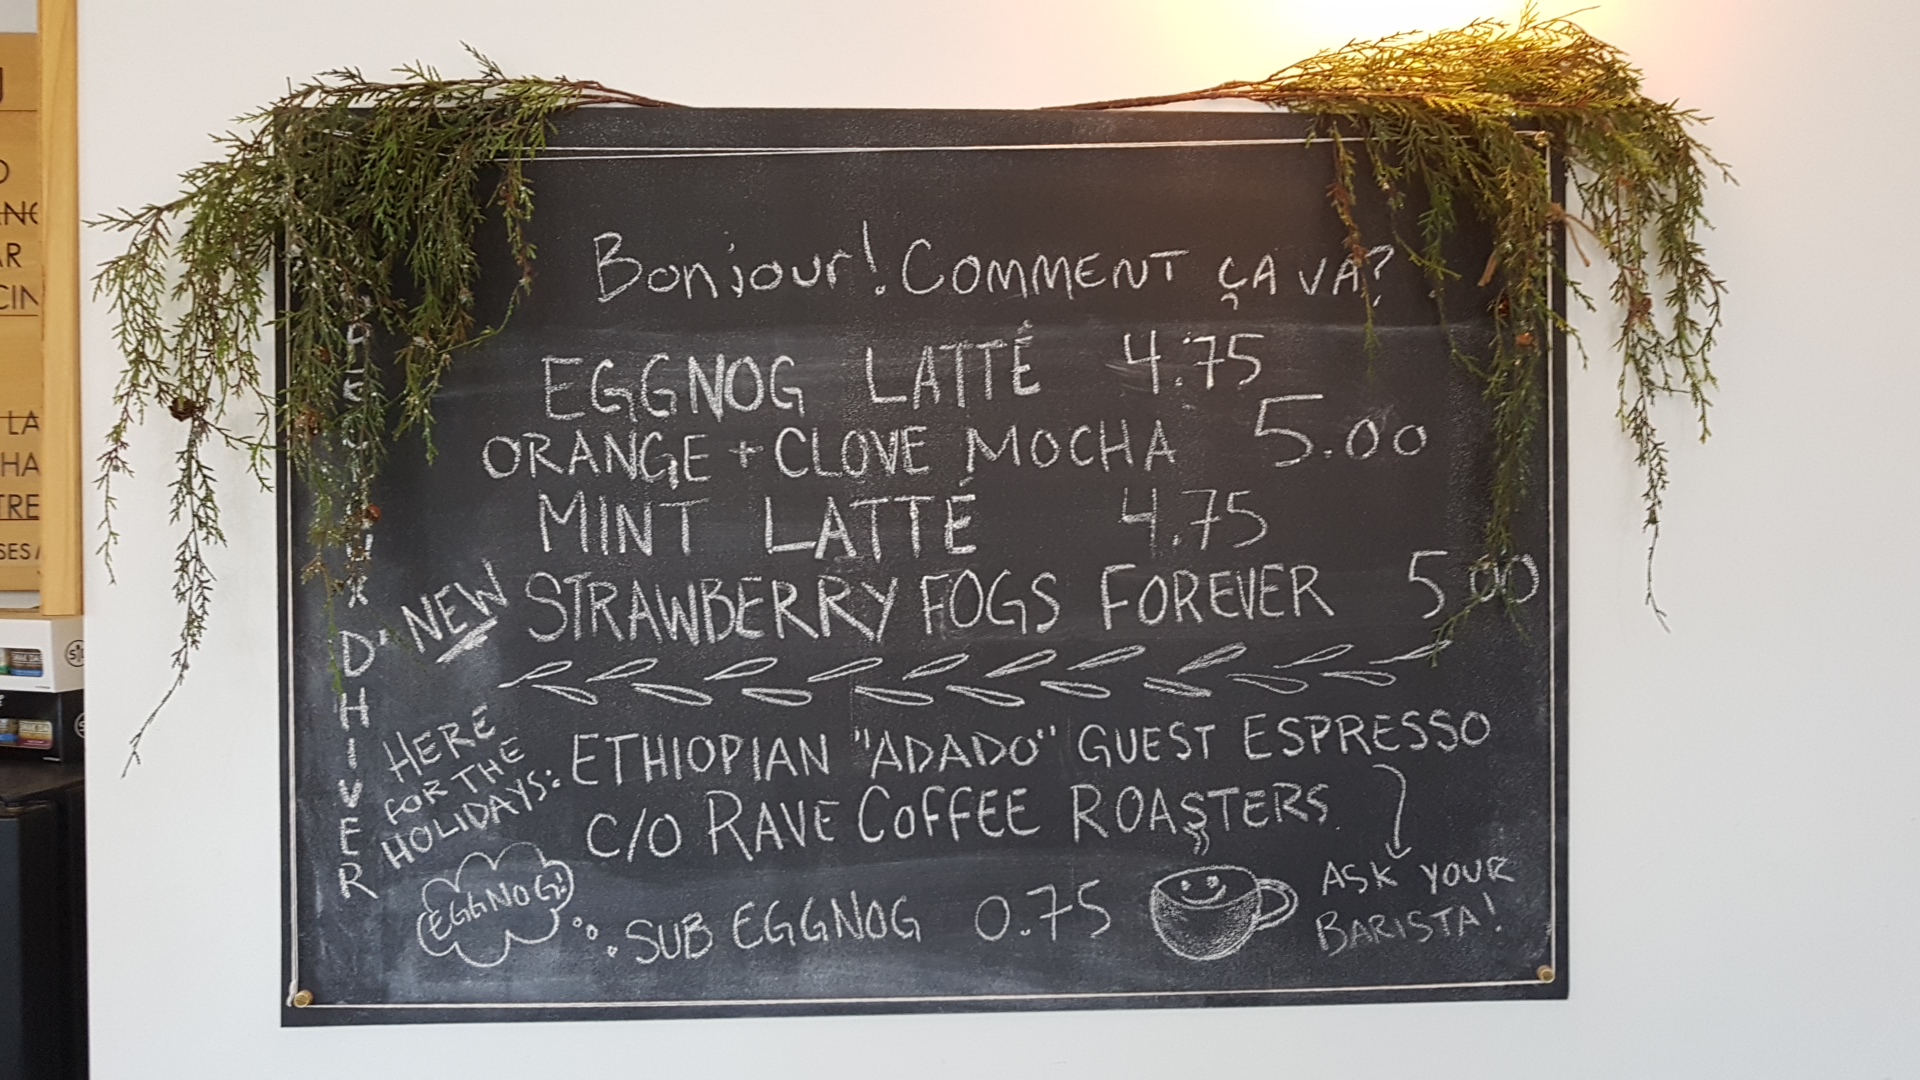 Bonjour! COMMENT ÇA VA?
EGGNOG LATTÉ 4.75
ORANGE + CLOVE MOCHA 5.00
MINT LATTÉ 4.75
NEW STRAWBERRY FOGS FOREVER 5.00
HERE FOR THE HOLIDAYS: ETHIOPIAN "ADADO" GUEST ESPRESSO
C/O RAVE COFFEE ROASTERS
EGGNOG! SUB EGGNOG 0.75
ASK YOUR
BARISTA!
D'HIVER
LA
HA
TRE